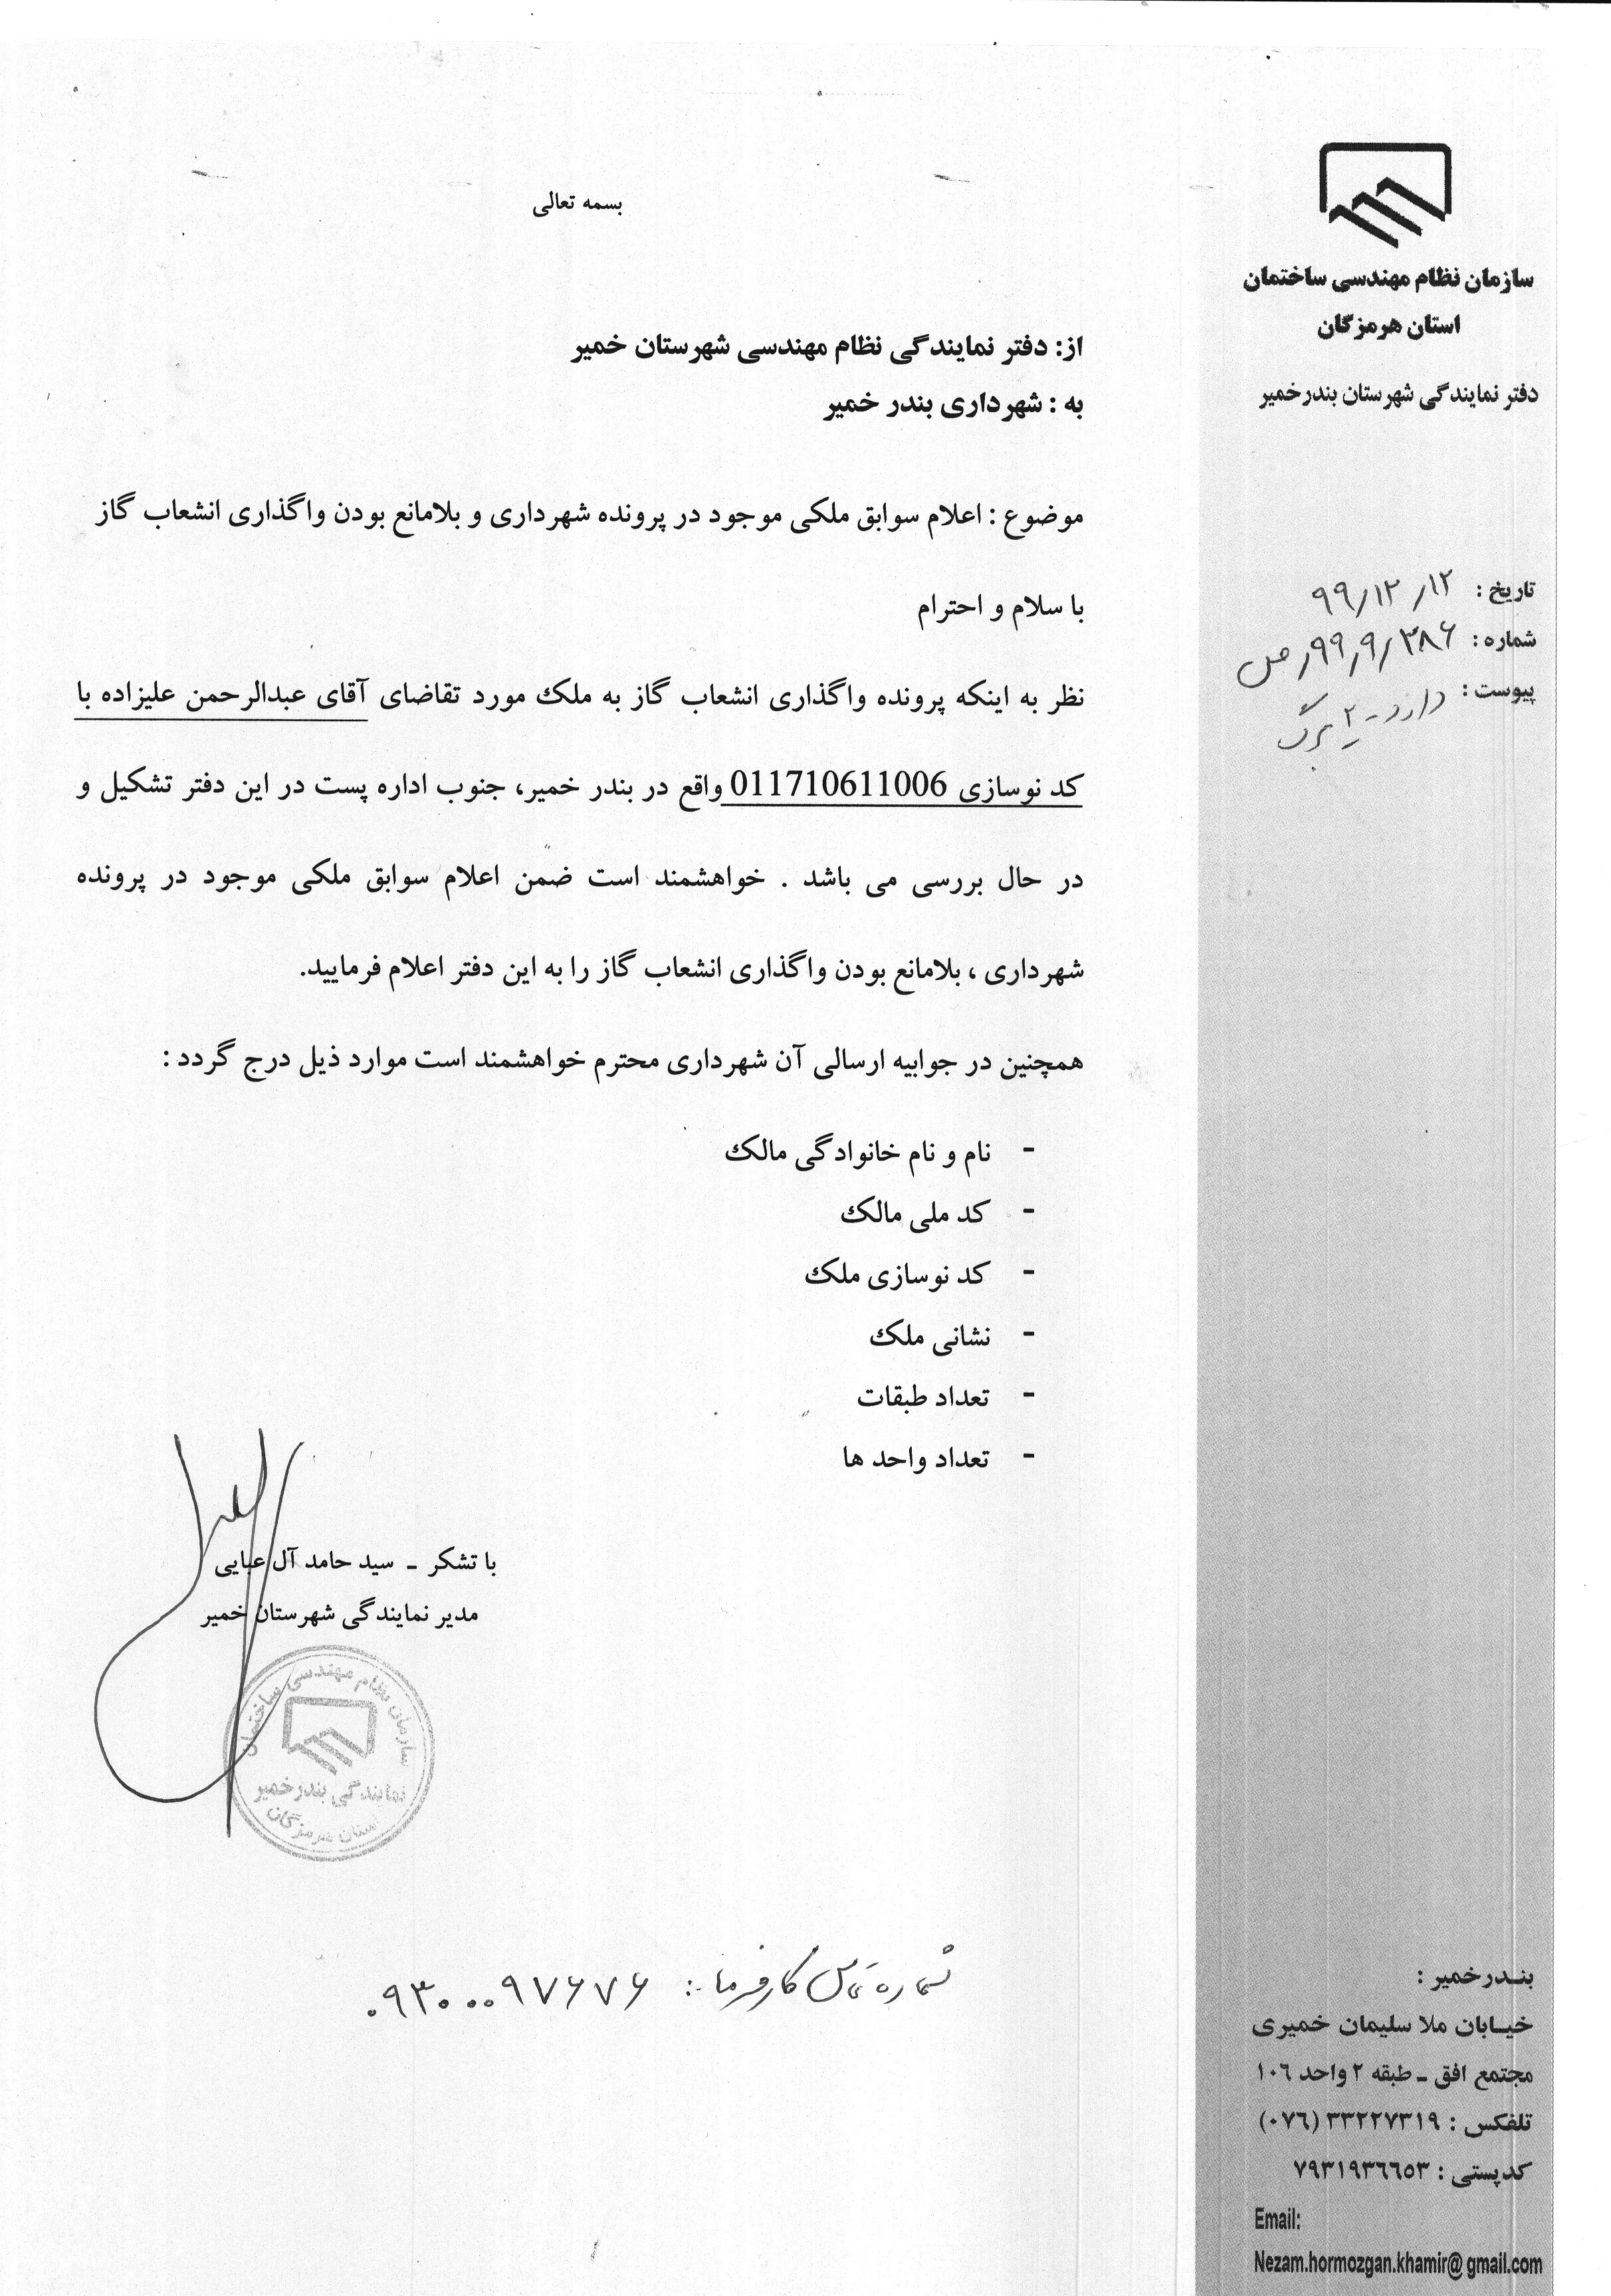 سازمان نظام مهندسی ساختمان
استان هرمزگان
دفتر نمایندگی شهرستان بندرخمیر
تاریخ : ۹۹/۱۲/۱۲
شماره : ۹۹/۹/۳۸۶/ص
پیوست : دارد - ۲ برگ
بسمه تعالی
از: دفتر نمایندگی نظام مهندسی شهرستان خمیر
به : شهرداری بندر خمیر
موضوع : اعلام سوابق ملکی موجود در پرونده شهرداری و بلامانع بودن واگذاری انشعاب گاز
با سلام و احترام
نظر به اینکه پرونده واگذاری انشعاب گاز به ملک مورد تقاضای آقای عبدالرحمن علیزاده با
کد نوسازی 011710611006 واقع در بندر خمیر، جنوب اداره پست در این دفتر تشکیل و
در حال بررسی می باشد . خواهشمند است ضمن اعلام سوابق ملکی موجود در پرونده
شهرداری ، بلامانع بودن واگذاری انشعاب گاز را به این دفتر اعلام فرمایید.
همچنین در جوابیه ارسالی آن شهرداری محترم خواهشمند است موارد ذیل درج گردد :
- نام و نام خانوادگی مالک
- کد ملی مالک
- کد نوسازی ملک
- نشانی ملک
- تعداد طبقات
- تعداد واحد ها
با تشکر - سید حامد آل عبایی
مدیر نمایندگی شهرستان خمیر
سازمان نظام مهندسی ساختمان
نمایندگی بندرخمیر
استان هرمزگان
شماره تماس کارفرما : ۰۹۳۰۰۰۹۷۶۷۶
بندرخمیر :
خیابان ملا سلیمان خمیری
مجتمع افق - طبقه ۲ واحد ۱۰۶
تلفکس : ۳۳۲۲۷۳۱۹ (۰۷۶)
کدپستی : ۷۹۳۱۹۳۶۶۵۳
Email:
Nezam.hormozgan.khamir@gmail.com